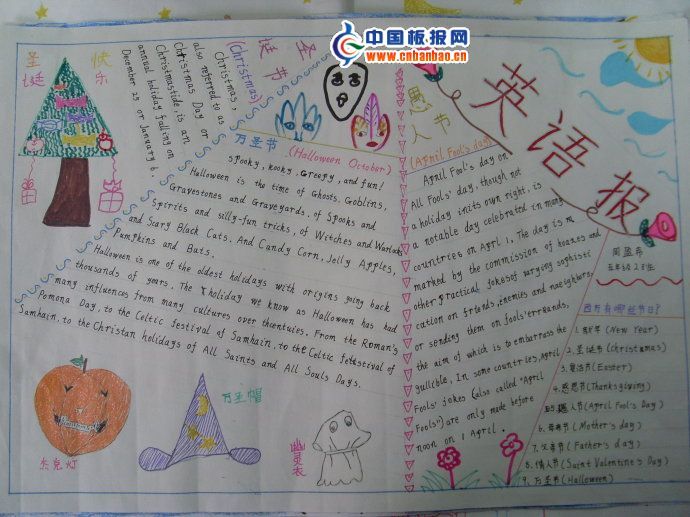 中国板报网
www.cnbanbao.cn
英语报
圣诞
快乐
圣诞节
(Christmas)
Christmas,
also referred to as
Christmas Day or
Christmastide is an
annual holiday falling on
December 25 or January 6.
万圣节 (Halloween October)
Spooky, kooky, creepy, and fun!
Halloween is the time of Ghosts, Goblins,
Gravestones and Graveyards. of Spooks and
Spirits and silly-fun tricks, of Witches and Warlocks
and Scary Black Cats. And Candy Corn, Jelly Apples,
Pumpkins and Bats.
Halloween is one of the oldest holidays with origins going back
thousands of years. The holiday we know as Halloween has had
many influences from many cultures over the From the Roman's
Pomona Day, to the Celtic festival of Samhain, to the Celtic festival of
Samhain, to the Christan holidays of All Saints and All Souls Days.
杰克灯
万圣帽
幽灵衣
愚人节
(April Fool's day)
April Fool's day on
All Fools' day, though not
a holiday inits own right, is
a notable day celebrated in many
countries on April 1, The day is
marked by the commission of hoaxes and
other practical jokesof varying sophisti
cation on friends, enemies and
or sending them on fools' errands,
the aim of which is to embarrass the
gullible, In some countries, April
Fools' jokes (also called "April
Fools") are only made before
noon on 1 April.
西方有哪些节日?
1. 新年 (New Year)
2. 圣诞节 (christamas)
3. 复活节 (Easter)
4. 感恩节 (Thanksgiving)
5. 愚人节 (April Fool's Day)
6. 母亲节 (Mother's day)
7. 父亲节 (Father's day)
8. 情人节 (Saint Valentine's Day)
9. 万圣节 (Halloween)